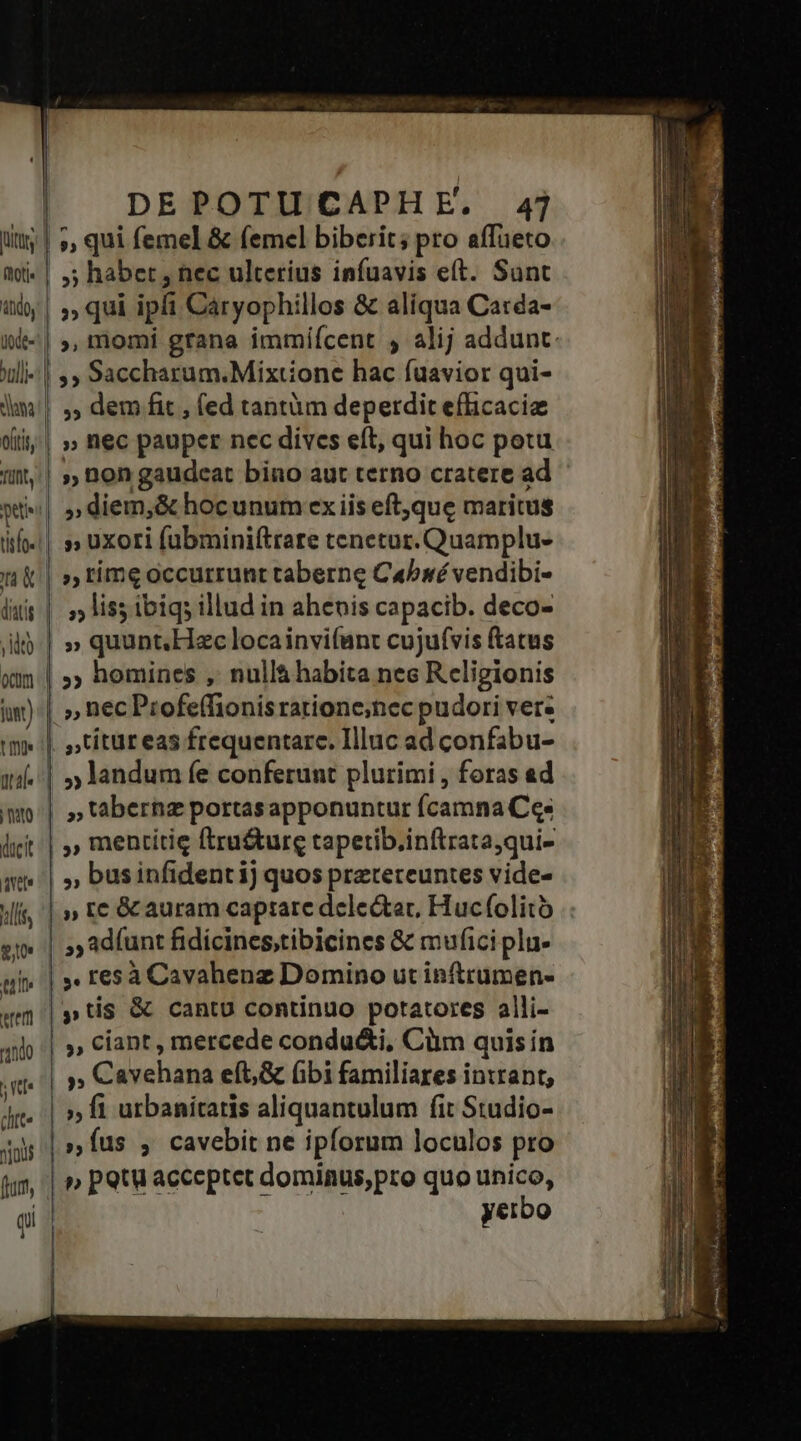 DE POTU CAPHE. 47
„ qui ſemel & ſemel biberit; pro aſſueto
„ habet, nec ulterius inſuavis eſt. Sunt
„ qui ipſi Caryophillos & aliqua Carda-
„ momi grana immiſcent , alij addunt
„ Saccharum. Mixtione hac ſuavior qui-
„ dem fit , ſed tantùm deperdit efficaciæ
„ nec pauper nec dives eſt, qui hoc potu
„ non gaudeat bino aut terno cratere ad
„ diem, & hoc unum ex iis eſt, que maritus
„ uxori ſubminiſtrare tenetur. Quamplu-
„ rimę occurrunt tabernę Cabwé vendibi-
„ lis; ibiq; illud in ahenis capacib. deco-
„ quunt. Hæc loca inviſunt cujuſvis ſtatus
„ homines , nullâ habita nec Religionis
„ nec Profeſſionis ratione, nec pudori ver-
„ titur eas frequentare. Illuc ad confabu-
„ landum ſe conferunt plurimi , foras ad
„ tabernæ portas apponuntur ſcamna Cę-
„ mentitię ſtructurę tapetib. inſtrata, qui-
„ bus inſident ij quos prætereuntes vide-
„ re & auram captare delectat. Huc ſolitò
„ adſunt fidicines, tibicines & muſici plu-
„ res à Cavahenæ Domino ut inſtrumen-
„ tis & cantu continuo potatores alli-
„ ciant , mercede conducti, Cùm quis in
„ Cavehana eſt, & ſibi familiares intrant,
„ ſi urbanitatis aliquantulum ſit Studio-
„ ſus , cavebit ne ipſorum loculos pro
„ potu acceptet dominus, pro quo unico,
verbo